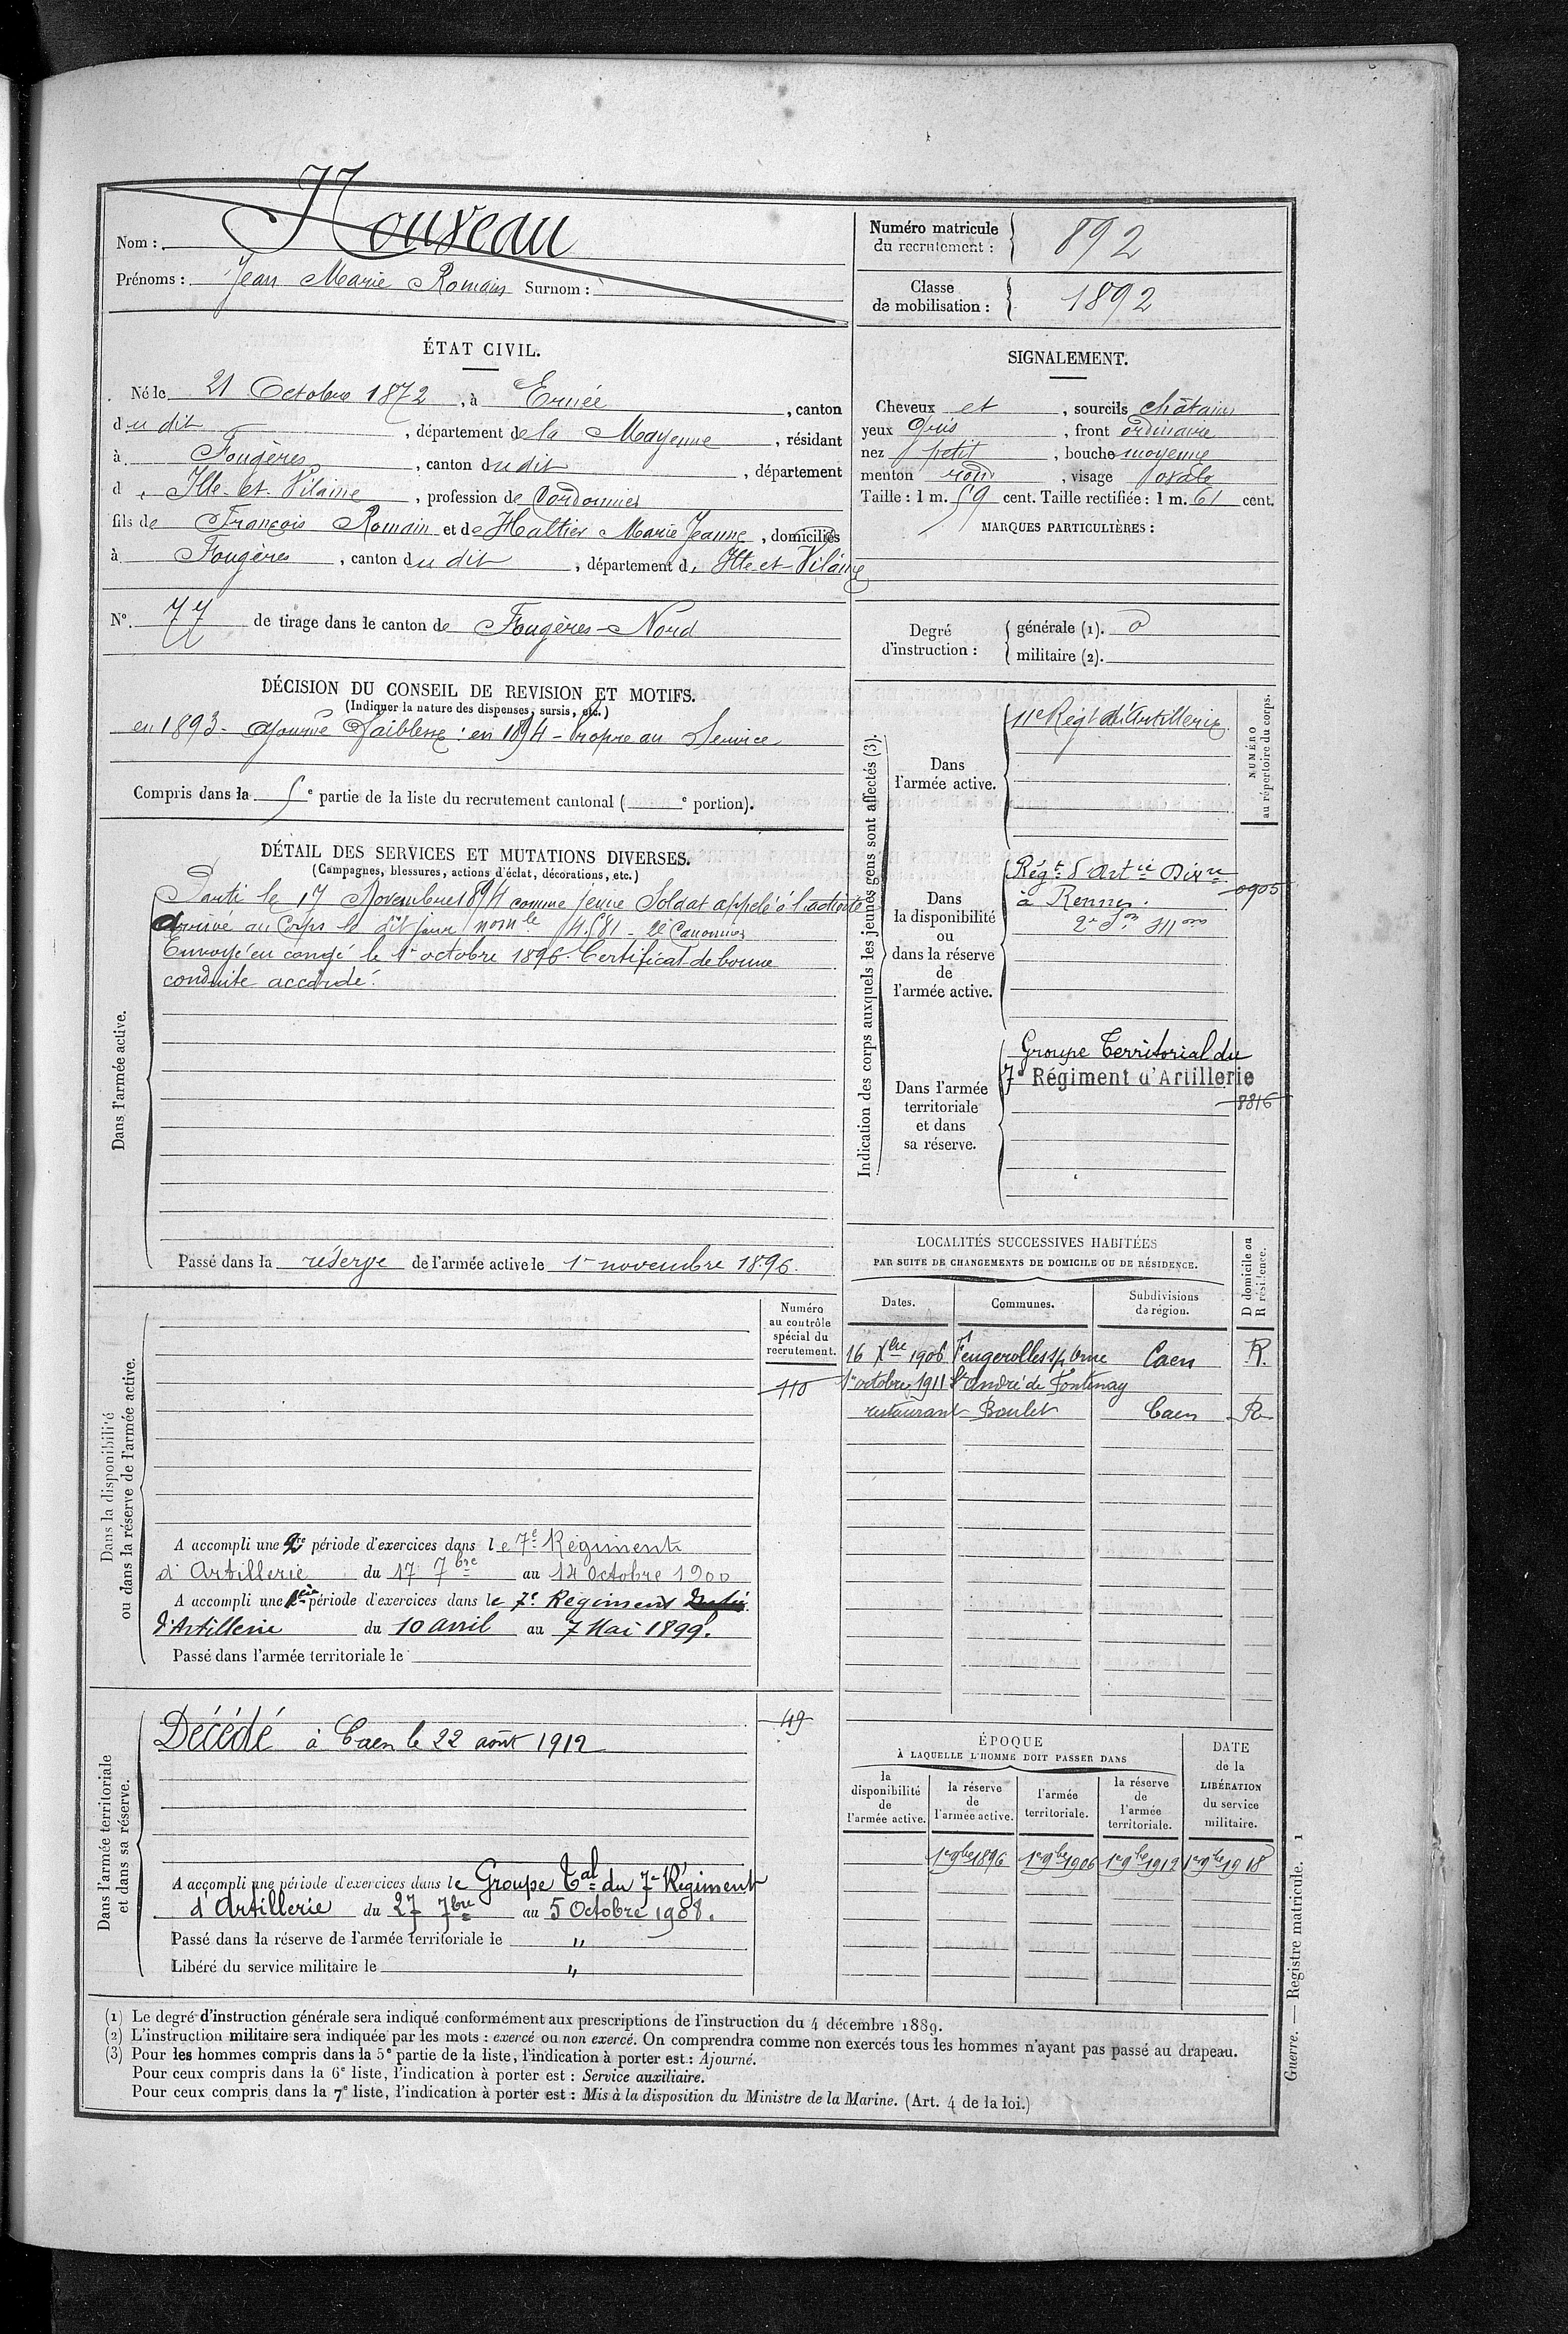 Nom : Nouveau
Prénoms : Jean Marie Romain Surnom :
Numéro matricule du recrutement : 892
Classe de mobilisation : 1892
ÉTAT CIVIL.
Né le 21 Octobre 1872, à Ernée, canton
du dit, département de la Mayenne, résidant
à Fougères, canton du dit, département
d. Ille-et-Vilaine, profession de Cordonnier
fils de François Romain et de Haltier Marie Jeanne, domiciliés
à Fougères, canton du dit, département d. Ille-et-Vilaine
N°. 77 de tirage dans le canton de Fougères-Nord
SIGNALEMENT.
Cheveux et, sourcils châtains
yeux Gris, front ordinaire
nez petit, bouche moyenne
menton rond, visage ovale
Taille : 1 m. 59 cent. Taille rectifiée : 1 m. 61 cent.
MARQUES PARTICULIÈRES :
Degré d'instruction :
générale (1). 0
militaire (2).
DÉCISION DU CONSEIL DE REVISION ET MOTIFS.
(Indiquer la nature des dispenses, sursis, etc.)
en 1893 - ajourné Faiblesse : en 1894 - Propre au Service
Compris dans la 5e partie de la liste du recrutement cantonal ( e portion).
DÉTAIL DES SERVICES ET MUTATIONS DIVERSES.
(Campagnes, blessures, actions d'éclat, décorations, etc.)
Dans l'armée active.
Parti le 17 Novembre 1894 comme jeune Soldat appelé à l'activité
Arrivé au Corps le dit jour nom le 14.581 - 2e Canonnier
Envoyé en congé le 1er octobre 1896. Certificat de bonne
conduite accordé.
Passé dans la réserve de l'armée active le 1er novembre 1896
Indication des corps auxquels les jeunes gens sont affectés (3).
NUMÉRO au répertoire du corps.
Dans l'armée active.
11e Régt d'Artillerie
Dans la disponibilité ou dans la réserve de l'armée active.
Régt d'Artie Divre
0905
à Rennes.
Dans l'armée territoriale et dans sa réserve.
Groupe Territorial du
7e Régiment d'Artillerie
8816
LOCALITÉS SUCCESSIVES HABITÉES
PAR SUITE DE CHANGEMENTS DE DOMICILE OU DE RÉSIDENCE.
Dates. Communes. Subdivisions de région. D domicile ou R résidence.
16 Xbre 1906 Feugerolles s/ Orne Caen R.
1er octobre 1911 St André de Fontenay
restaurant Boulet Caen R
Dans la disponibilité ou dans la réserve de l'armée active.
Numéro au contrôle spécial du recrutement.
110
A accompli une 2e période d'exercices dans le 7e Régiment
d'Artillerie du 17 7bre au 14 Octobre 1900
A accompli une 1ère période d'exercices dans le 7e Régiment
d'Artillerie du 10 avril au 7 Mai 1899.
Passé dans l'armée territoriale le
Dans l'armée territoriale et dans sa réserve.
49
Décédé à Caen le 22 août 1912
A accompli une période d'exercices dans le Groupe Tal du 7e Régiment
d'Artillerie du 27 7bre au 5 Octobre 1908.
Passé dans la réserve de l'armée territoriale le "
Libéré du service militaire le "
ÉPOQUE
À LAQUELLE L'HOMME DOIT PASSER DANS
la disponibilité de l'armée active.
la réserve de l'armée active.
l'armée territoriale.
la réserve de l'armée territoriale.
DATE de la LIBÉRATION du service militaire.
1er 9bre 1896 1er 9bre 1906 1er 9bre 1912 1er 9bre 1918
(1) Le degré d'instruction générale sera indiqué conformément aux prescriptions de l'instruction du 4 décembre 1889.
(2) L'instruction militaire sera indiquée par les mots : exercé ou non exercé. On comprendra comme non exercés tous les hommes n'ayant pas passé au drapeau.
(3) Pour les hommes compris dans la 5e partie de la liste, l'indication à porter est : Ajourné.
Pour ceux compris dans la 6e liste, l'indication à porter est : Service auxiliaire.
Pour ceux compris dans la 7e liste, l'indication à porter est : Mis à la disposition du Ministre de la Marine. (Art. 4 de la loi.)
Guerre. — Registre matricule. 1